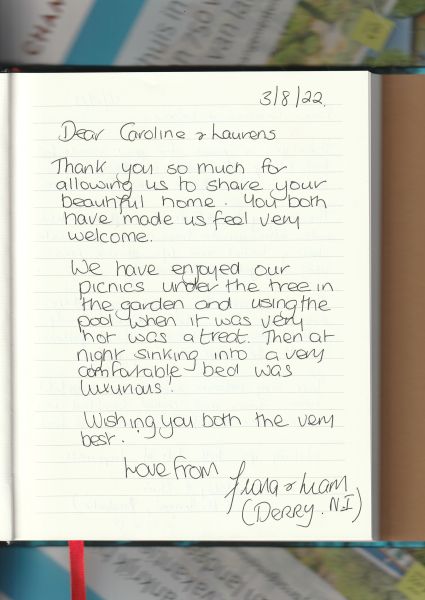 CHAN
3/8/22.
Dear Caroline & Laurens
Thank you so much for
allowing us to share your
beautiful home. You both
have made us feel very
welcome.
We have enjoyed our
picnics under the tree in
the garden and using the
pool when it was very
hot was a treat. Then at
night sinking into a very
comfortable bed was
luxurious!
Wishing you both the very
best.
Love from
Fiona & Liam
(DERRY. NI)